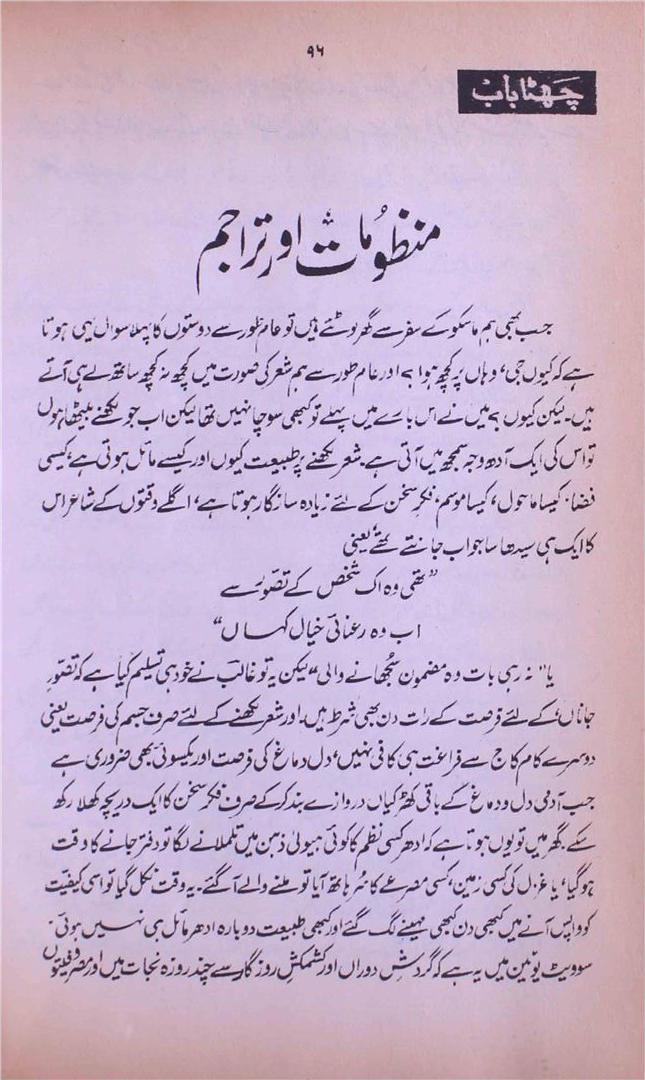 ۹۶
چھٹا باب
منظومات اور تراجم
جب بھی ہم ماسکو کے سفر سے گھر لوٹتے ہیں تو عام طور سے دوستوں کا پہلا سوال یہی ہوتا
ہے کہ کیوں جی، وہاں پر کچھ ہوا؟ اور عام طور سے ہم شعر کی صورت میں کچھ نہ کچھ ساتھ لے ہی آتے
ہیں۔ لیکن کیوں؟ میں نے اس بارے میں پہلے تو کبھی سوچا نہیں تھا لیکن اب جو لکھنے بیٹھا ہوں
تو اس کی ایک آدھ وجہ سمجھ میں آتی ہے۔ شعر لکھنے پر طبیعت کیوں اور کیسے مائل ہوتی ہے، کیسی
فضا، کیسا ماحول، کیسا موسم، فکرِ سخن کے لئے زیادہ سازگار ہوتا ہے، اگلے وقتوں کے شاعر اس
کا ایک ہی سیدھا سا جواب جانتے تھے، یعنی
"تھی وہ اک شخص کے تصوّر سے
اب وہ رعنائی خیال کہاں"
یا "نہ رہی بات وہ مضمون سُجھانے والی" لیکن یہ تو غالبؔ نے خود ہی تسلیم کیا ہے کہ تصوّرِ
جاناں کے لئے فرصت کے رات دن بھی شرط ہیں۔ اور شعر لکھنے کے لئے صرف جسم کی فرصت یعنی
دوسرے کام کاج سے فراغت ہی کافی نہیں، دل دماغ کی فرصت اور یکسوئی بھی ضروری ہے
جب آدمی دل و دماغ کے باقی کھڑکیاں دروازے بند کر کے صرف فکرِ سخن کا ایک دریچہ کھلا رکھ
سکے۔ گھر میں تو یوں ہوتا ہے کہ ادھر کسی نظم کا کوئی ہیولیٰ ذہن میں تلملانے لگا تو دفتر جانے کا وقت
ہو گیا، یا غزل کی کسی زمین، کسی مصرعے کا سُر ہاتھ آیا تو ملنے والے آ گئے۔ یہ وقت نکل گیا تو اسی کیفیت
کو واپس آنے میں کبھی دن کبھی مہینے لگ گئے اور کبھی طبیعت دوبارہ ادھر مائل ہی نہیں ہوئی۔
سوویٹ یونین میں یہ ہے کہ گردشِ دوراں اور کشمکشِ روزگار سے چند روزہ نجات میں اور مصروفیتوں